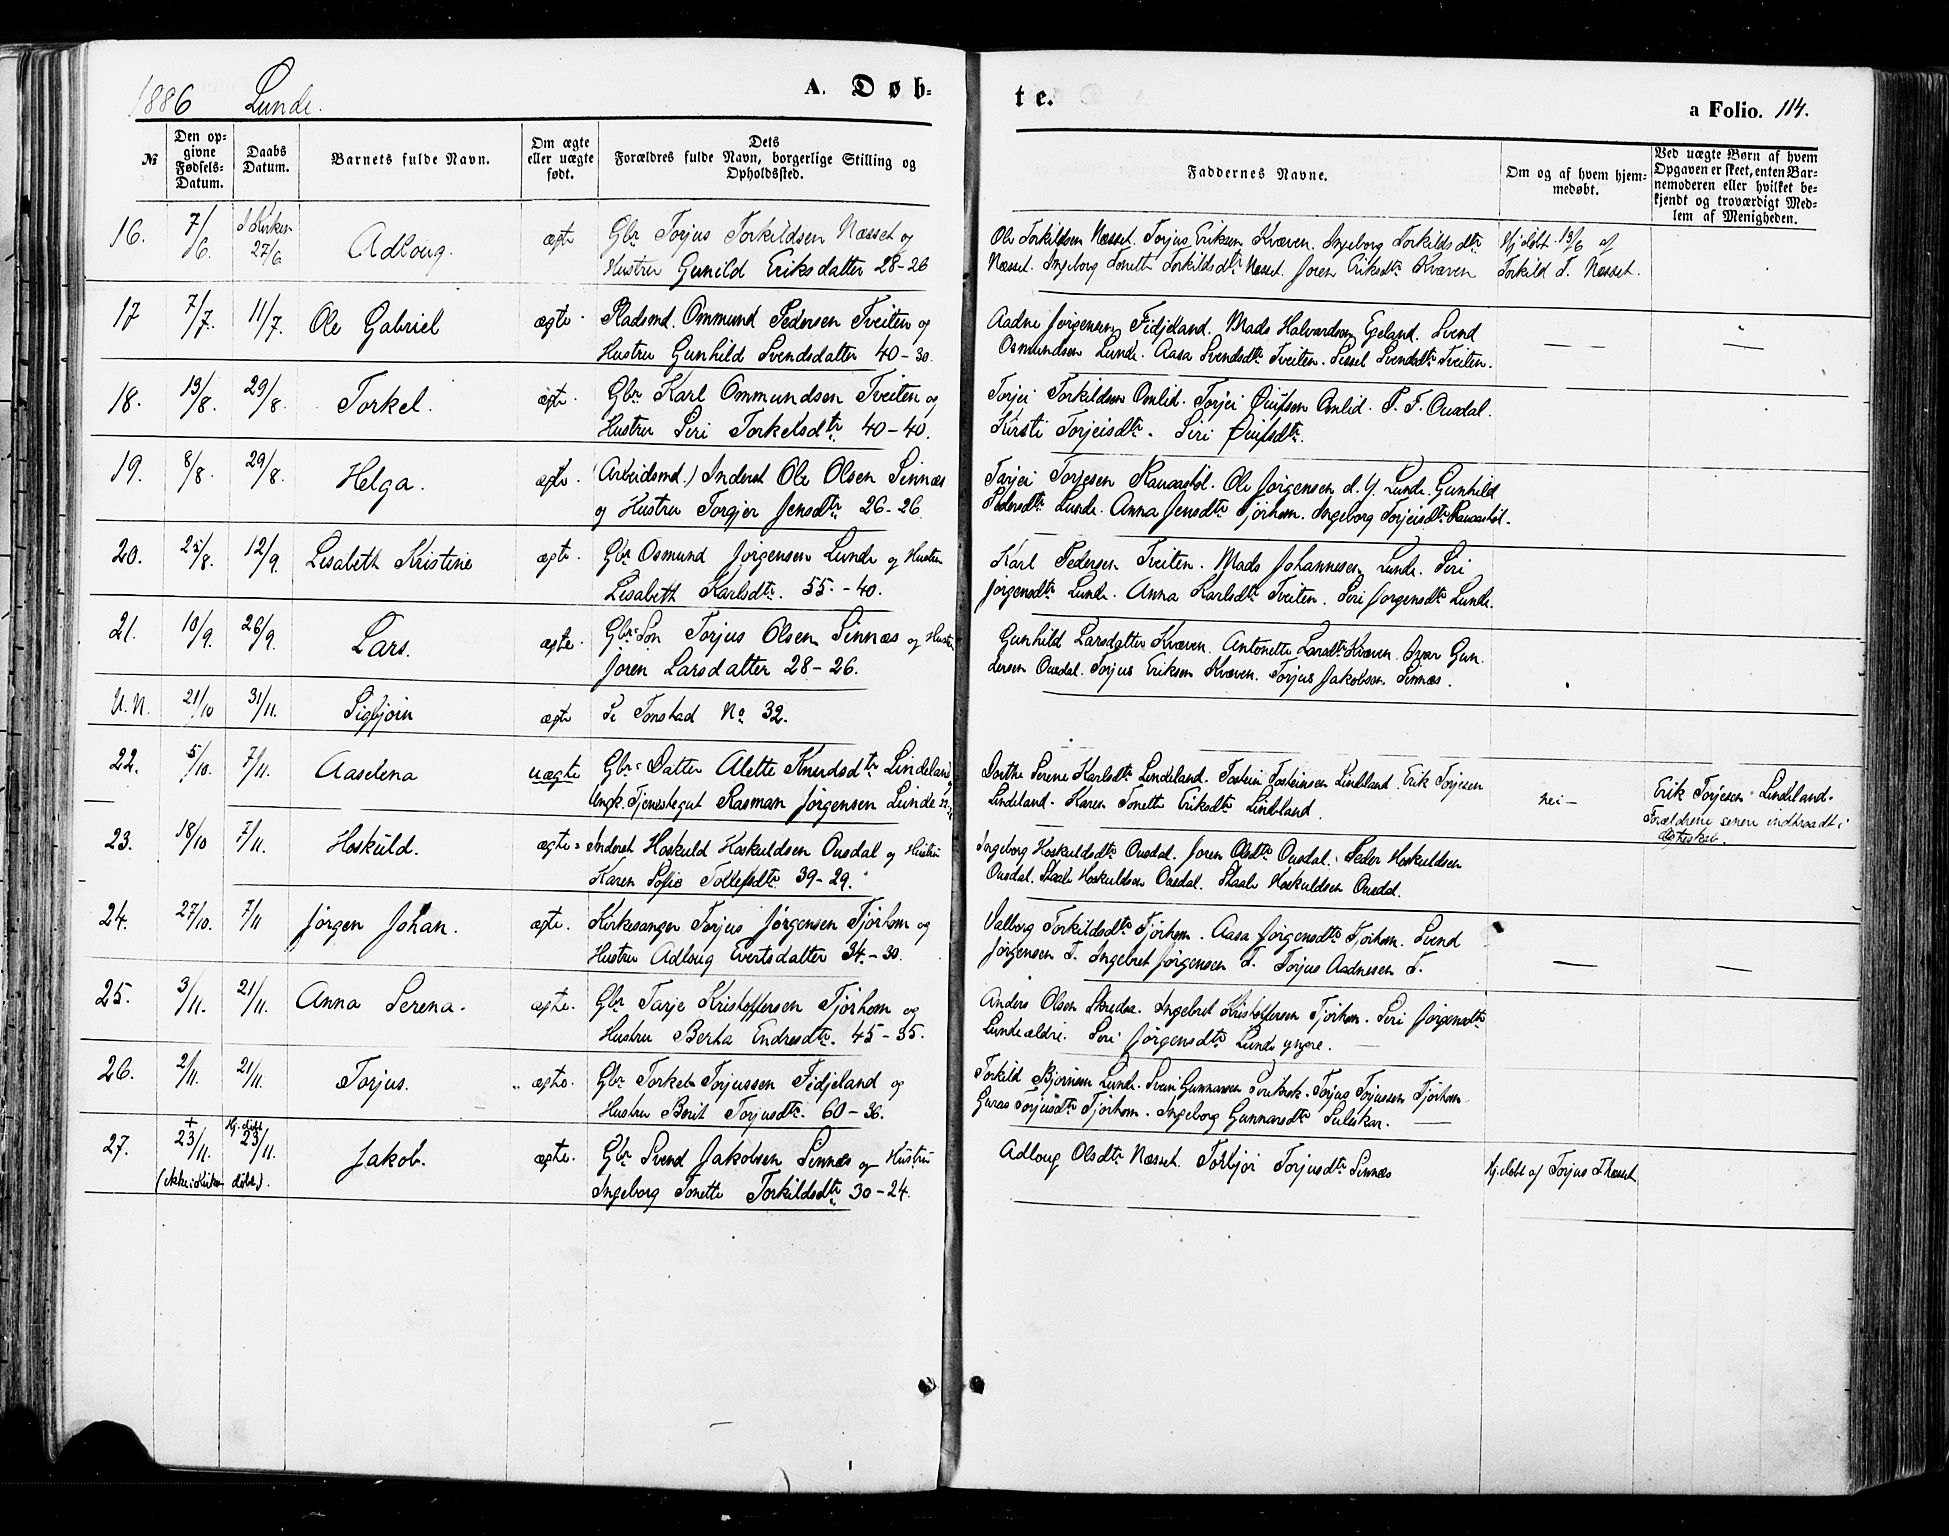 1886 Lunde. A. Døb-
te. a Folio. 114.
№ Den op-
givne
Fødsels-
Datum. Daabs
Datum. Barnets fulde Navn. Om ægte
eller uægte
født. Dets
Forældres fulde Navn, borgerlige Stilling og
Opholdssted.
Faddernes Navne. Om og af hvem hjem-
medøbt. Ved uægte Børn af hvem
Opgaven er skeet, enten Bar-
nemoderen eller hvilket be-
kjendt og troværdigt Med-
lem af Menigheden.
16. 7/6. I Kirken 27/6. Adloug. ægte Gbr Torjus Torkildsen Næsset og
Hustru Gunild Eriksdatter 28-26
Ole Torkildsen Næsset. Torjus Eriksen Kvæven. Ingeborg Torkildsdtr
Næsset. Ingeborg Tonette Torkildsdtr Næsset. Joren Eriksdtr Kvæven
Hj. døbt 13/6 af
Torkild T. Næsset.
17 7/7. 11/7. Ole Gabriel ægte Pladsmd. Ommund Pedersen Tveiten og
Hustru Gunhild Svendsdatter 40-30.
Aadne Jørgensen Fidjeland. Mads Halvardsen Egeland. Svend
Osmundsen Lunde. Aasa Svendsdtr Tveiten. Sissel Svendsdtr Tveiten.
18. 13/8. 29/8. Torkel. ægte. Gbr. Karl Ommundsen Tveiten og
Hustru Siri Torkelsdtr 40-40.
Torjei Torkildsen Omlid. Torjei Omlid. P. T. Ousdal.
Kirsti Torjeisdtr. Siri
19. 8/8. 29/8. Helga. ægte. (Arbeidsmd.) Inderst Ole Olsen Sinnæs
og Hustru Torgjer Jensdtr 26-26.
Tarjei Torjesen Ole Jørgensen d. y. Lunde. Gunhild
Pedersdtr Lunde. Anna Jensdtr Tjorhom. Ingeborg Torjeisdtr
20. 25/8. 12/9. Lisabeth Kristine ægte. Gbr Osmund Jørgensen Lunde og Hustru
Lisabeth Karlsdtr. 55.-40.
Karl Pedersen Tveiten. Mads Johannesen Lunde. Siri
Jørgensdtr Lunde. Anna Karlsdtr Tveiten. Siri Jorgensdtr Lunde.
21. 10/9. 26/9. Lars. ægte. Gbr. Søn Torjus Olsen Sinnæs og Hustru
Joren Larsdatter 28-26.
Gunhild Larsdatter Kvæven. Antonette Larsdtr Kvæven. Ivar Gun-
dersen Ousdal. Torjus Eriksen Kvæven. Torjus Jakobsen Sinnæs.
U.N. 21/10 31/11. Sigbjorn ægte Se Tonstad No 32.
22. 5/10. 7/11. Aaselena uægte Gbr. Datter Alette Knudsdtr Lindeland
Ungk. Tjenestegut Rasman Jørgensen Lunde
Dorthe Serene Karlsdtr Lindeland. Tostein Tosteinsen Lindeland. Erik Torjesen
Lindeland. Karen Tonette Eriksdtr Lindeland.
nei— Erik Torjesen Lindeland.
Forældrene senere indtraadt i
23. 18/10 7/11. Hoskuld. ægte. Inderst Hoskuld Hoskuldsen Ousdal og Hustru
Karen Sofie Tollefsdtr 39-29.
Ingeborg Hoskuldsdtr Ousdal. Joren Olsdtr Ousdal. Peder Hoskuldsen
Ousdal. Staale Hoskuldsen Ousdal. Staale Hoskuldsen Ousdal.
24. 27/10. 7/11 Jørgen Johan. ægte. Kirkesanger Torjus Jørgensen Tjorhom og
Hustru Adloug Evertsdatter 34.-30.
Valborg Torkildsdtr Tjorhom. Aasa Jorgensdtr Tjorhom. Svend
Jørgensen T. Ingebret Jørgensen T. Torjus Aadnesen T.
25. 3/11. 21/11. Anna Serena. ægte. Gbr Tarje Kristoffersen Tjorhom og
Hustru Berta Endresdtr. 45-35.
Anders Olsen Ingebret Kristoffersen Tjorhom. Siri Jørgensdtr
Lunde ældre. Siri Jørgensdtr Lunde yngre.
26. 2/11. 21/11. Torjus. ægte. Gbr Torkel Torjussen Fidjeland og
Hustru Berit Torjusdtr. 60-36.
Torkild Bjørnsen Lunde. Sven Gunnarsen Torjus Torjussen Tjorhom
Guros Torjusdtr Tjorhom. Ingeborg Gunnarsdtr Suleskar.
27. + 23/11. Hj. døbt 23/11. Jakob. ægte. Gbr Svend Jakobsen Sinnæs og Hustru
(ikke i Kirken døbt). Ingeborg Tonette Torkildsdtr 30-24.
Adloug Olsdtr Næsset. Torbjør Torjusdtr Sinnæs
Hj. døbt af Torjus T Næsset